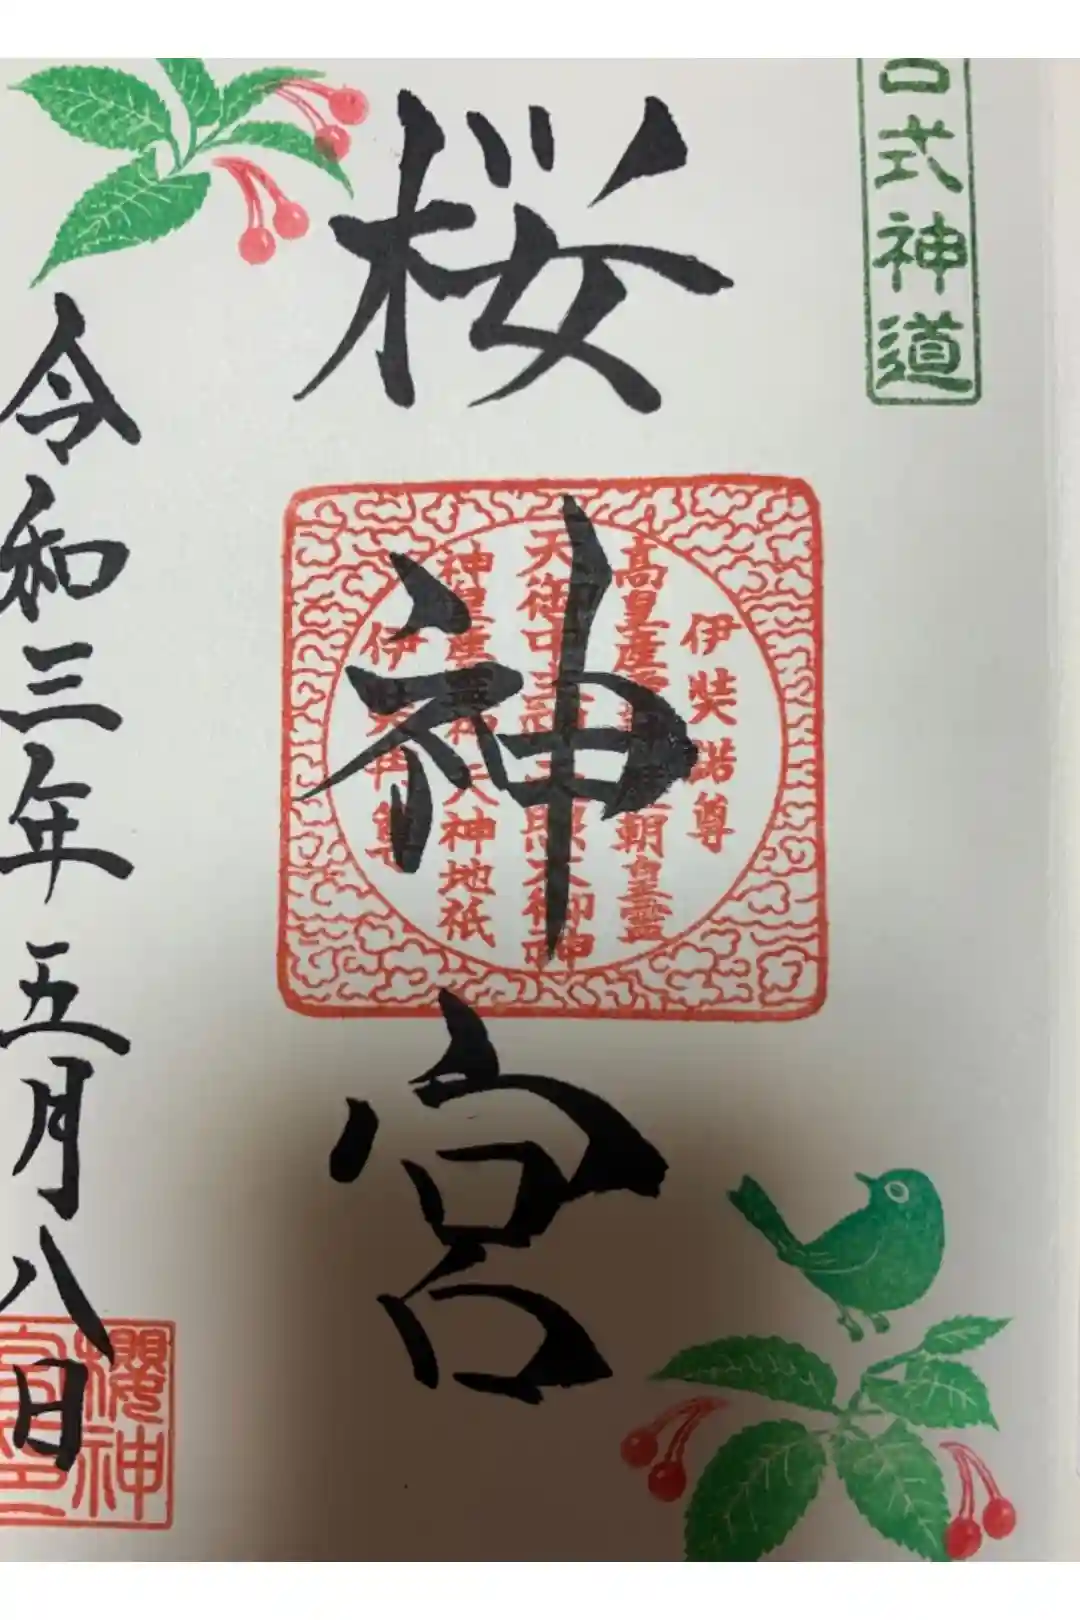 古式神道
桜神宮
伊奘諾尊
高皇産靈神 歴朝皇靈
天御中主神 天照大御神
神皇産靈神 天神地祇
伊奘冉尊
令和三年五月八日
櫻神
宮印